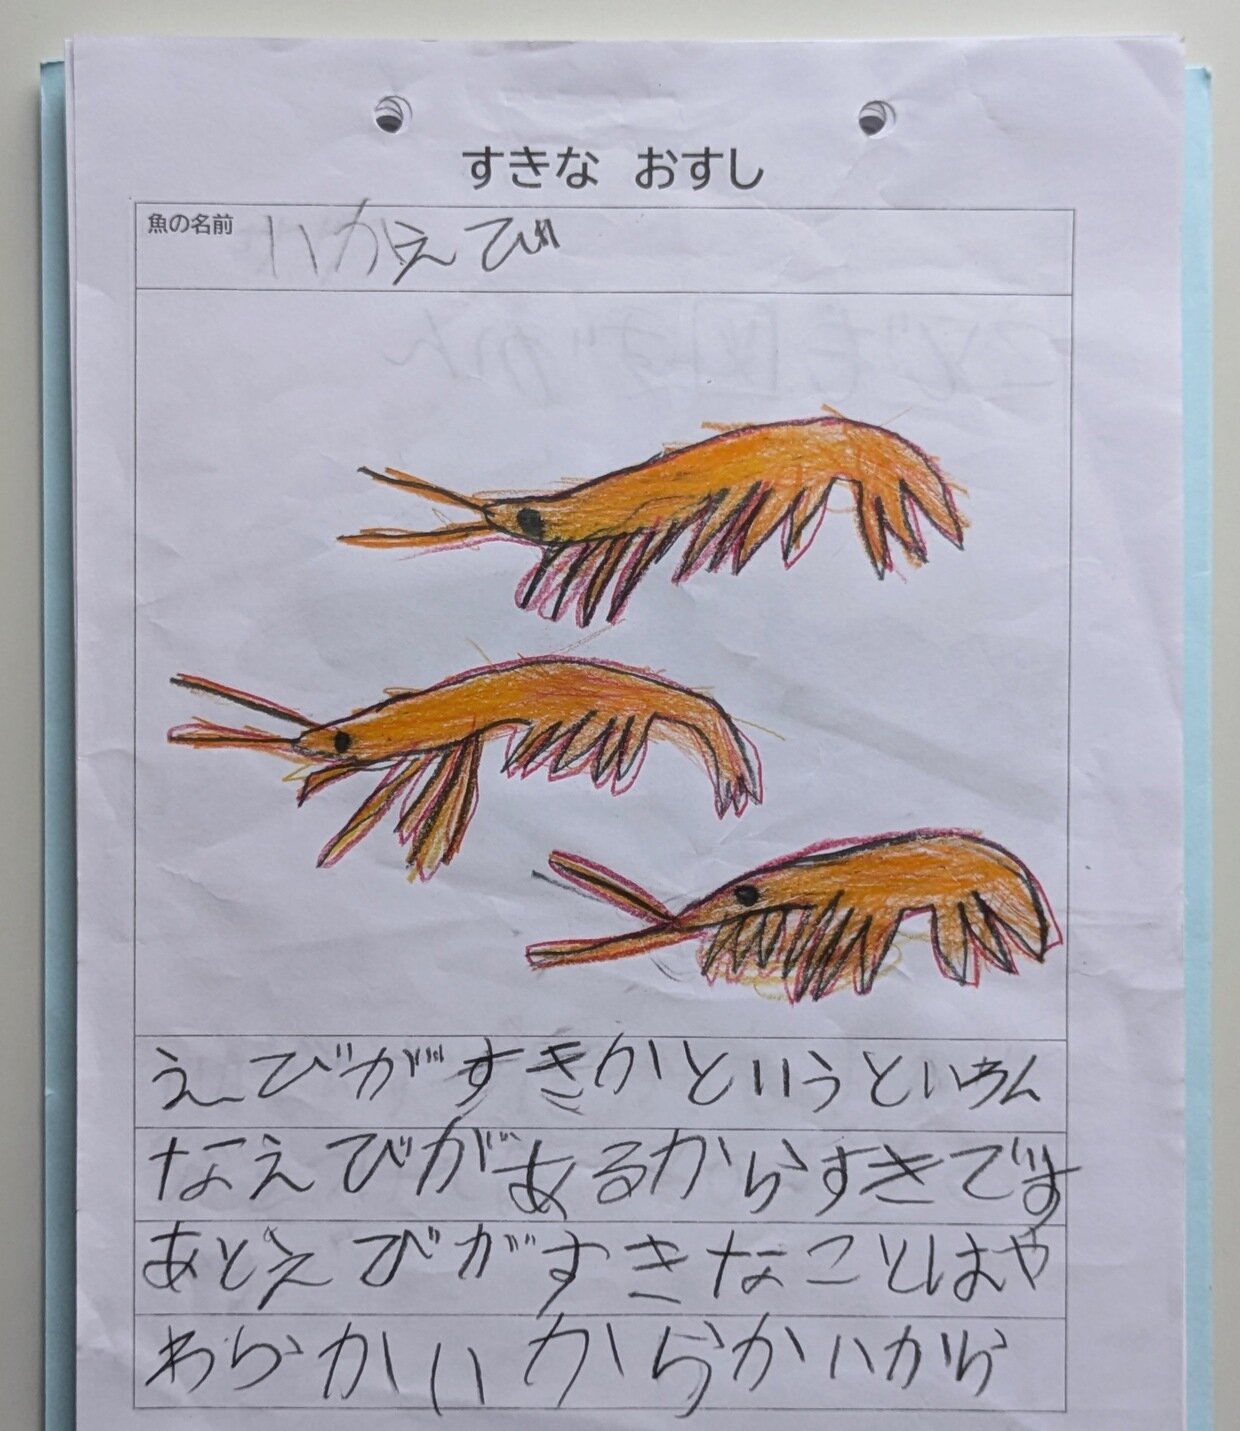 すきな おすし
魚の名前 いかえび
えびがすきかというといろん
なえびがあるからすきです
あとえびがすきなことはや
わらかいからかいから